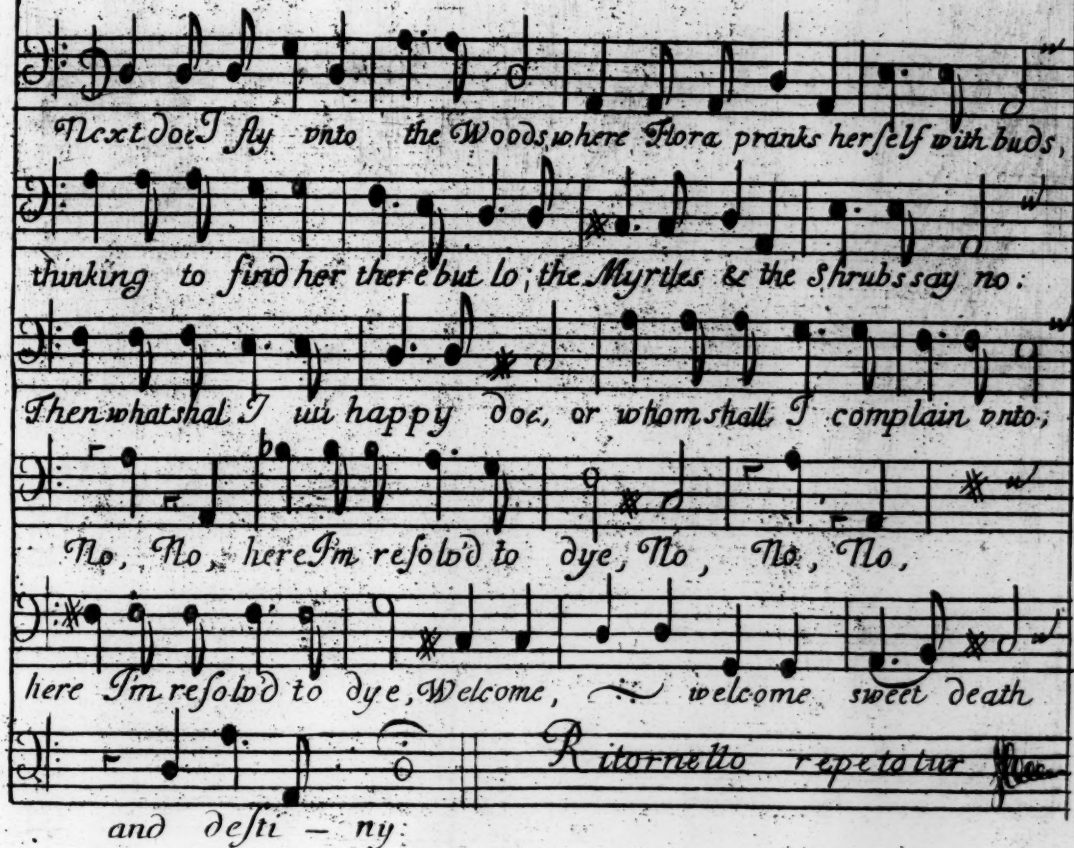 Next doe I fly vnto the Woods, where Flora pranks herſelf with buds,
thinking to find her there but lo; the Myrtles & the shrubs say no:
Then what shal I un happy doe, or whom shall I complain vnto;
No, No, here I'm reſolv'd to dye, No, No, No,
here I'm reſolv'd to dye, Welcome, welcome sweet death
Ritornello repetatur
and deſti – ny: